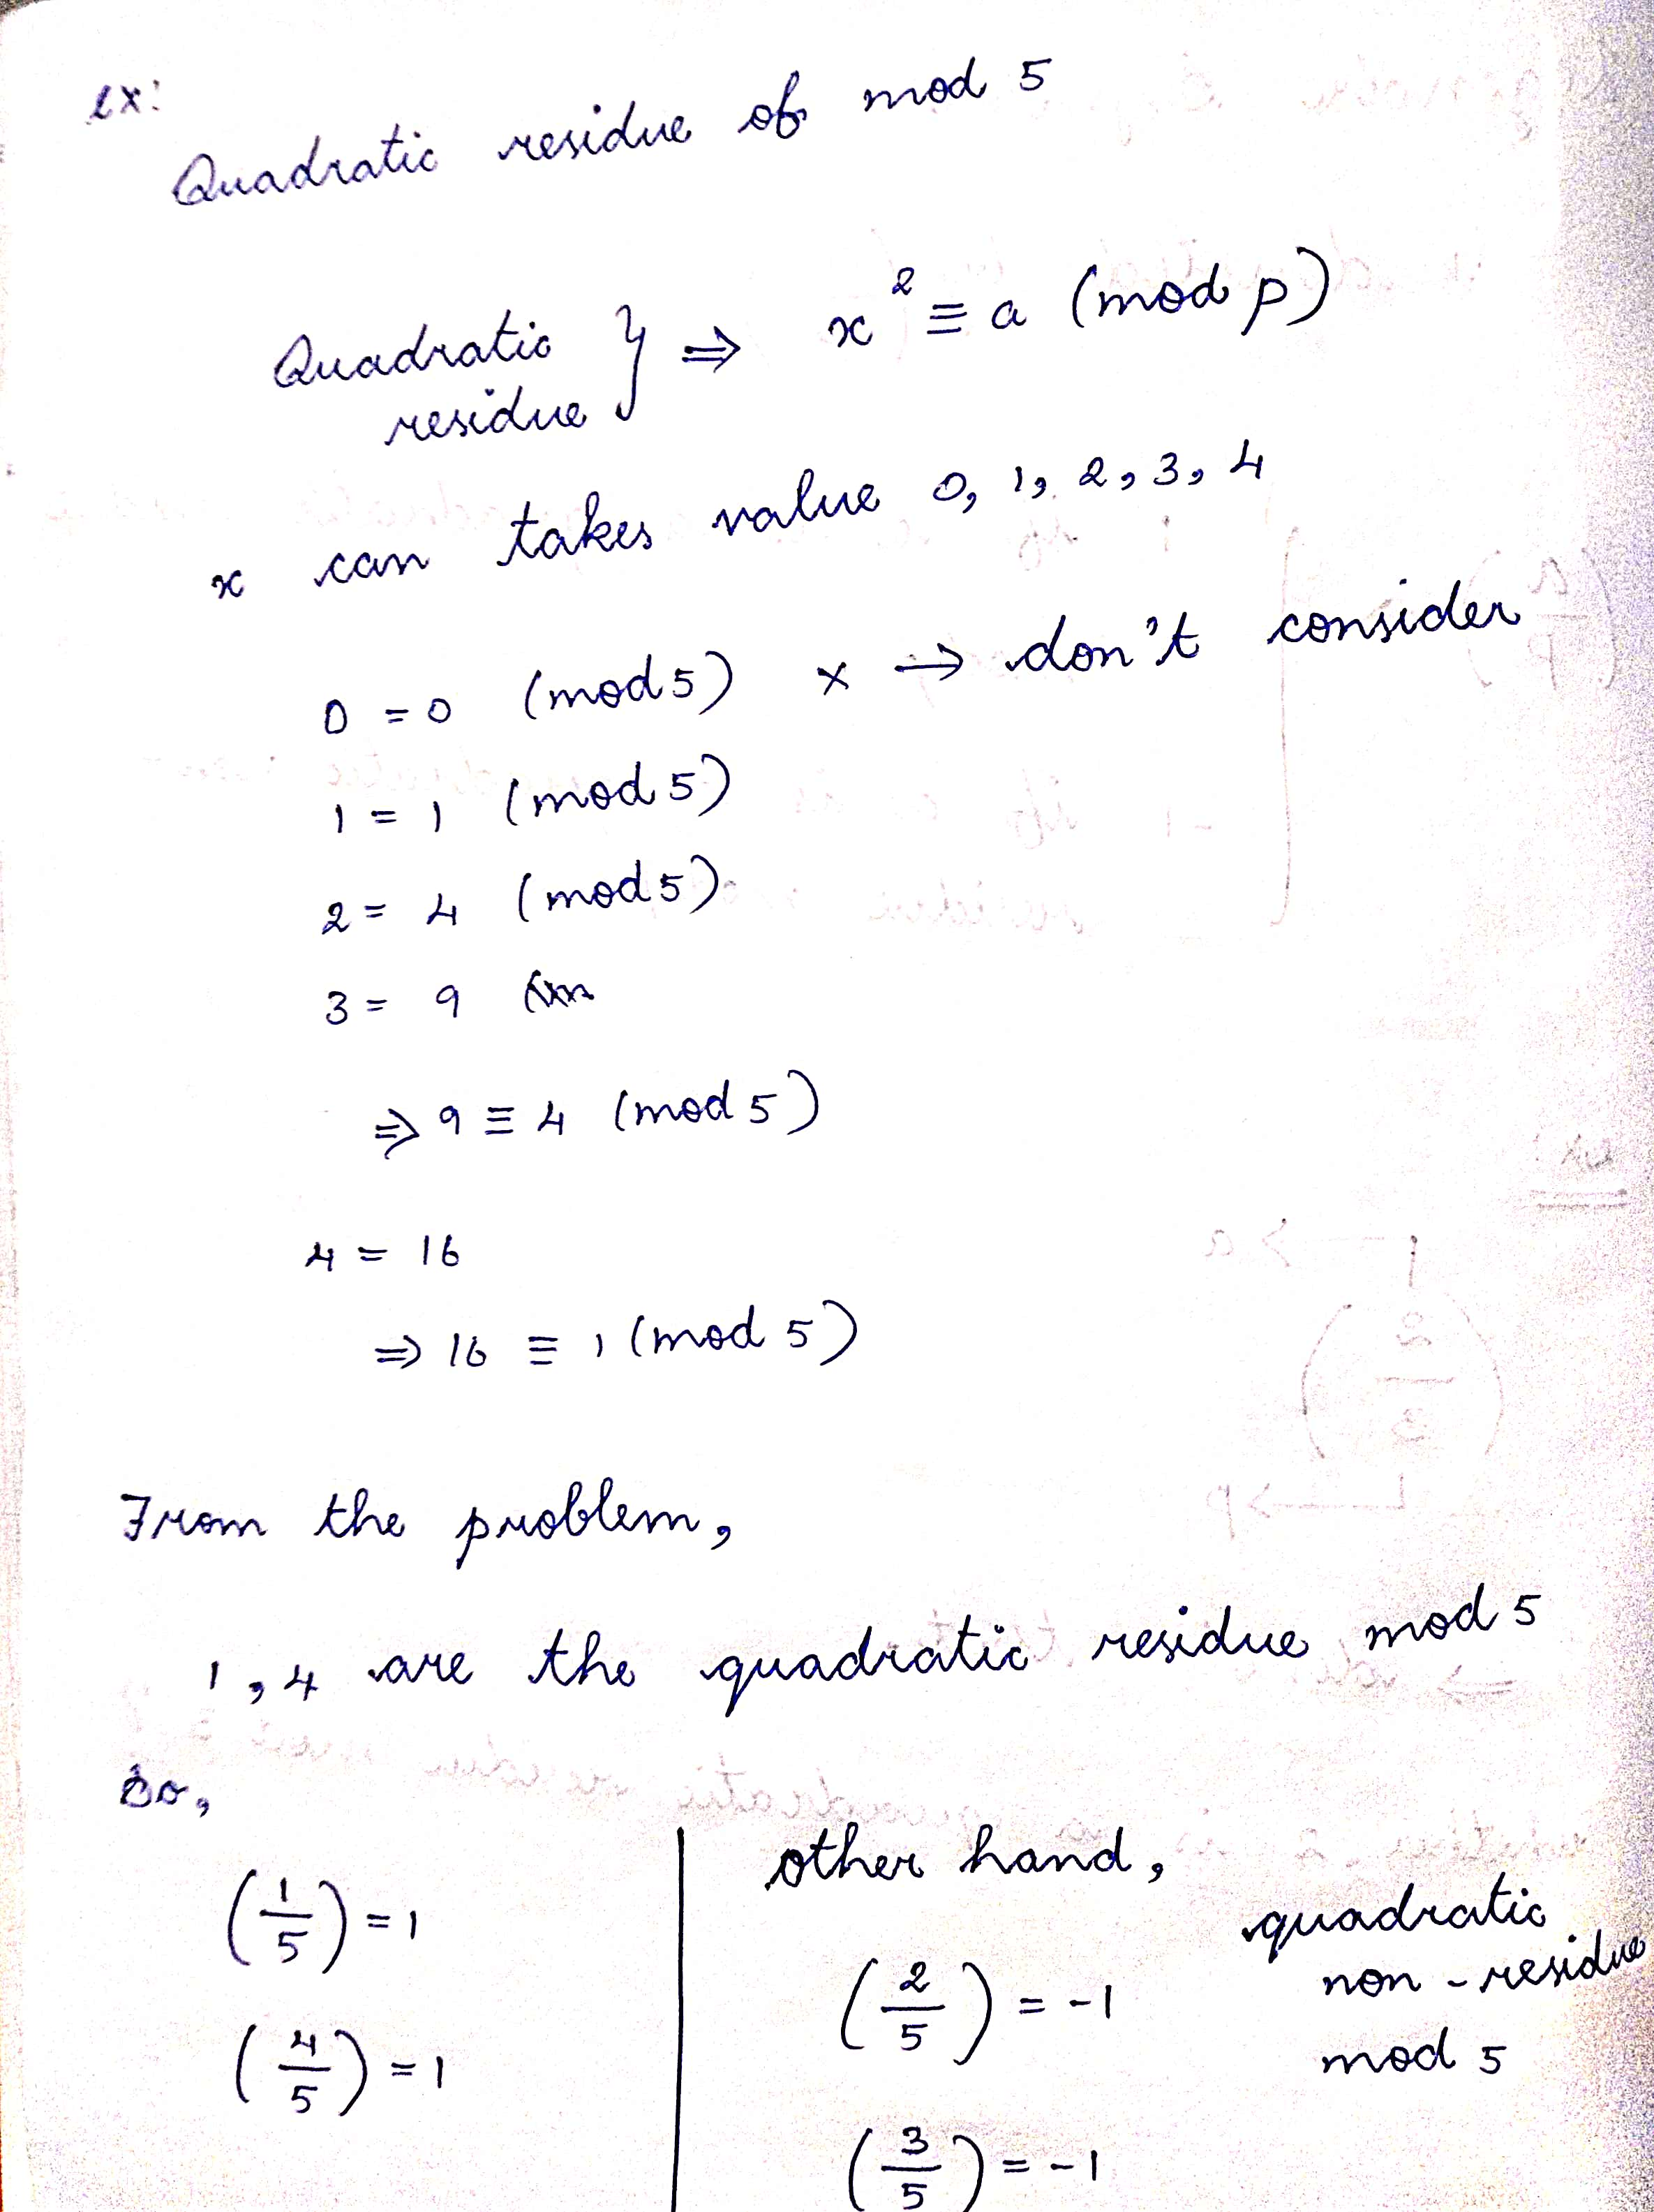 ex:
Quadratic residue of mod 5
Quadratic residue } ⇒ x² ≡ a (mod p)
x can takes value 0, 1, 2, 3, 4
0 = 0 (mod 5) × → don't consider
1 = 1 (mod 5)
2 = 4 (mod 5)
3 = 9
⇒ 9 ≡ 4 (mod 5)
4 = 16
⇒ 16 ≡ 1 (mod 5)
From the problem,
1, 4 are the quadratic residue mod 5
So,
(1/5) = 1
(4/5) = 1
other hand,
(2/5) = -1
(3/5) = -1
quadratic
non-residue
mod 5